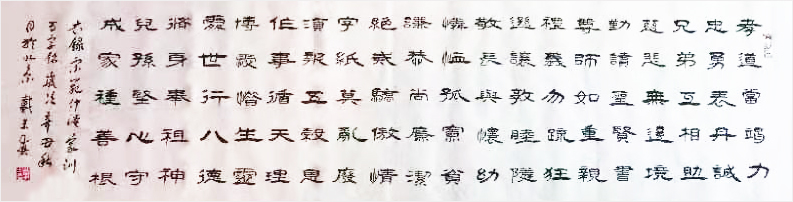 孝道當竭力
忠勇表丹誠
兄弟互相助
慈悲無邊境
勤讀聖賢書
尊師如重親
禮義勿疏狂
遜讓敦睦鄰
敬長與懷幼
憐恤孤寡貧
謙恭尚廉潔
絕戒驕傲情
字紙莫亂廢
須報五穀恩
作事循天理
博愛惜生靈
處世行八德
修身奉祖神
兒孫堅心守
成家種善根
錄宋范仲淹家訓
百字銘歲次辛丑秋
月於北京